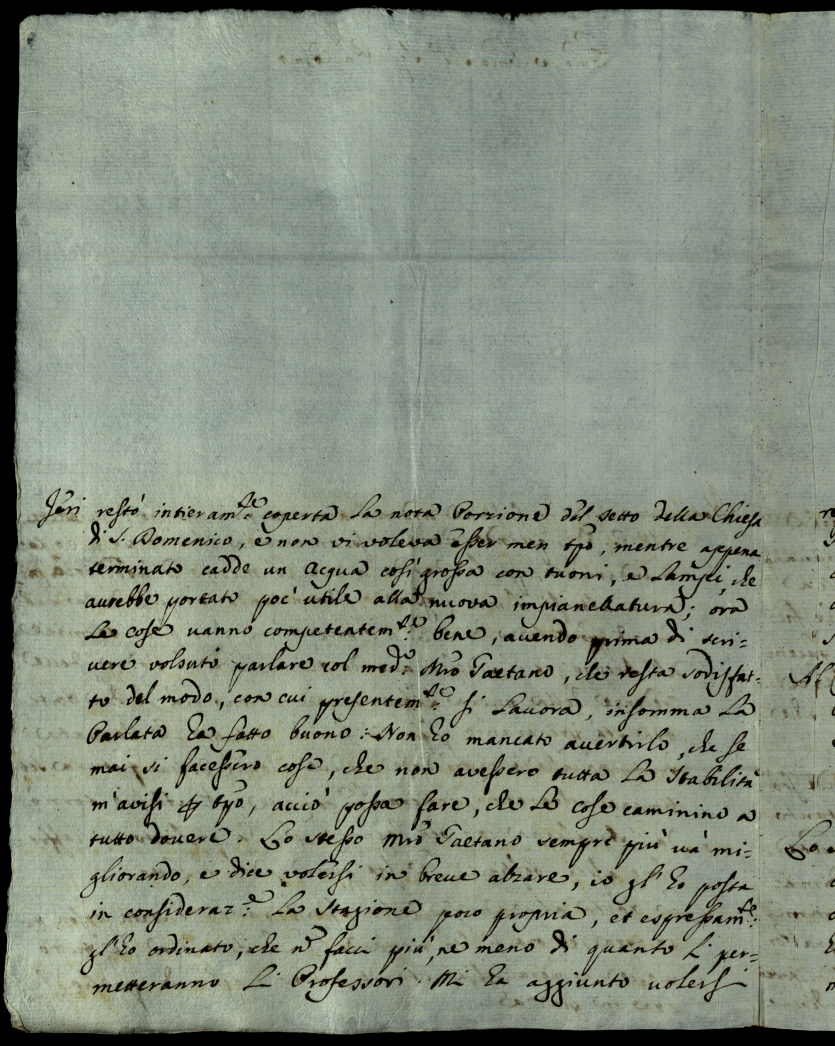 Jeri restò intieram.te coperta la nota Porzione del tetto della Chiesa
di S. Domenico, e non vi voleva esser men tpō, mentre appena
terminato cadde un Acqua così grossa con tuoni, e Lampi, che
aurebbe portato poc' utile alla nuova impianellatura; ora
Le cose vanno competentem.te bene, avendo prima di scri=
vere voluto parlare col med.o Mrō Gaetano, che resta sodisfat=
to del modo, con cui presentem.te si Lavora, insomma La
Parlata ha fatto buono: Non ho mancato avertirlo, che se
mai si facessero cose, che non avessero tutta La Stabilità
m'avisi p tpō, acciò possa fare, che Le cose caminino a
tutto dovere. Lo stesso Mrō Gaetano sempre più và mi=
gliorando, e dice volersi in breve alzare, io gl'ho posta
in consideraz.ne La Stagione poco propria, et espressam.te
gl'ho ordinato, che nō facci più, ne meno di quanto Li per=
metteranno Li Professori. Mi ha aggiunto volersi